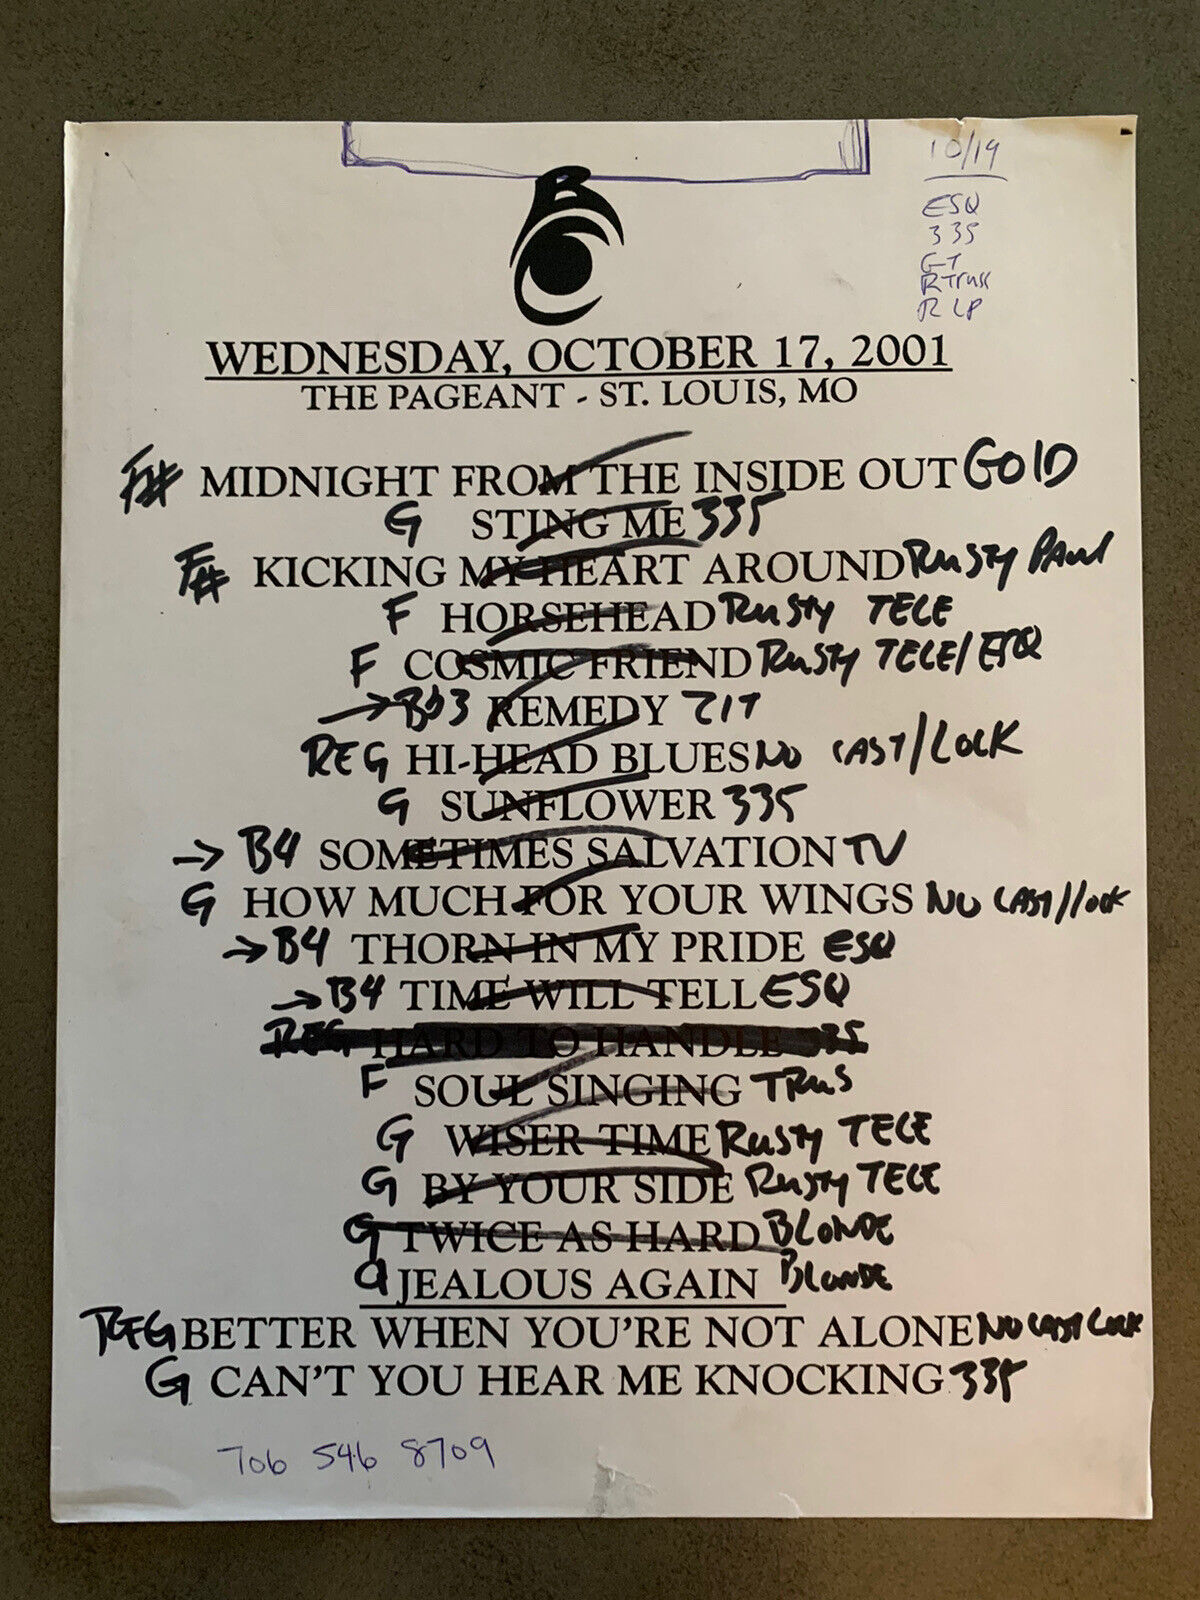 10/19
ESQ
335
GT
R Truss
R LP
B
WEDNESDAY, OCTOBER 17, 2001
THE PAGEANT - ST. LOUIS, MO
F# MIDNIGHT FROM THE INSIDE OUT GOLD
G STING ME 335
F# KICKING MY HEART AROUND RUSTY PAUL
F HORSEHEAD RUSTY TELE
F COSMIC FRIEND RUSTY TELE/ESQ
→ REMEDY
REG HI-HEAD BLUES NO CAST/LOCK
G SUNFLOWER 335
→ B4 SOMETIMES SALVATION TV
G HOW MUCH FOR YOUR WINGS NO CAST/lock
→ B4 THORN IN MY PRIDE ESQ
→ B4 TIME WILL TELL ESQ
REG HARD TO HANDLE 335
F SOUL SINGING TRUS
G WISER TIME RUSTY TELE
G BY YOUR SIDE RUSTY TELE
G TWICE AS HARD BLONDE
G JEALOUS AGAIN BLONDE
REG BETTER WHEN YOU'RE NOT ALONE NO CAST LOCK
G CAN'T YOU HEAR ME KNOCKING 335
706 546 8709